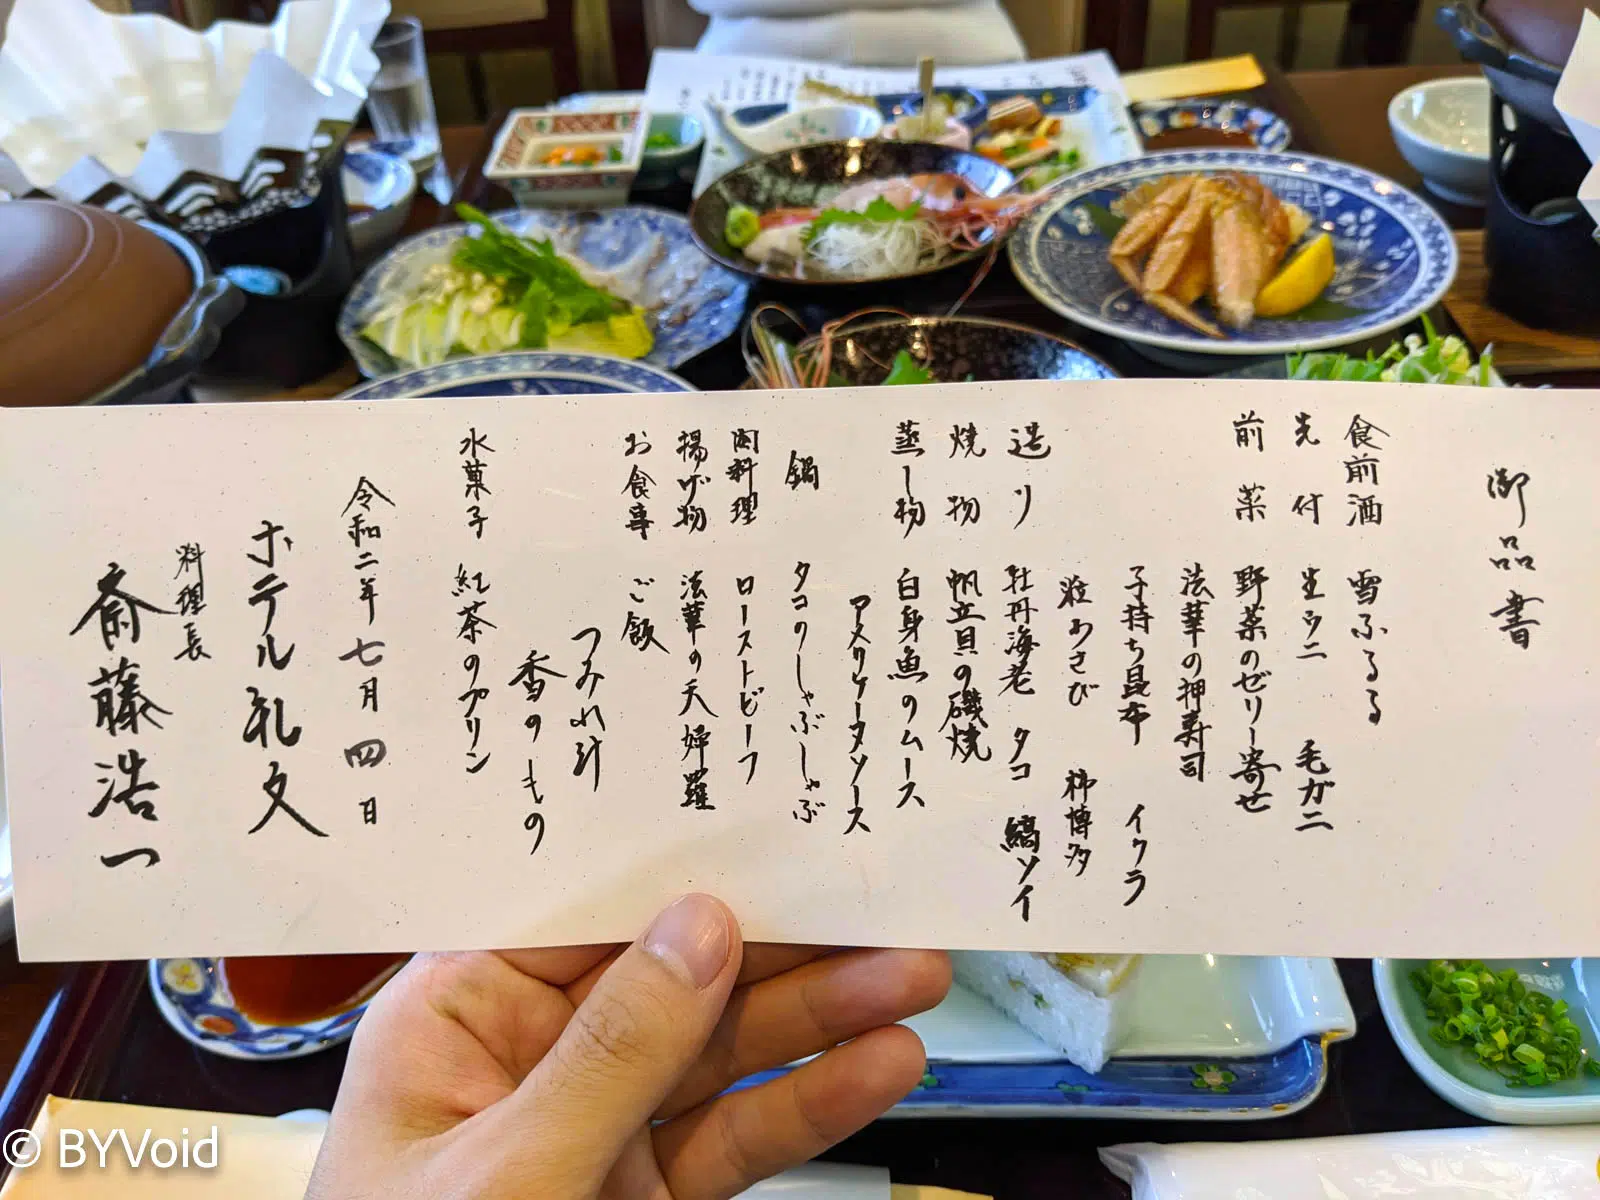 御品書
食前酒 雪ふるる
先付 生ウニ 毛ガニ
前菜 野菜のゼリー寄せ
法華の押寿司
子持ち昆布 イクラ
粒わさび 柿博多
造り 牡丹海老 タコ 縞ソイ
焼物 帆立貝の磯焼
蒸し物 白身魚のムース
アメリケーヌソース
鍋 タコのしゃぶしゃぶ
肉料理 ローストビーフ
揚げ物 法華の天婦羅
お食事 ご飯
つみれ汁
香のもの
水菓子 紅茶のプリン
令和二年七月四日
ホテル礼文
料理長
斎藤浩一
© BYVoid